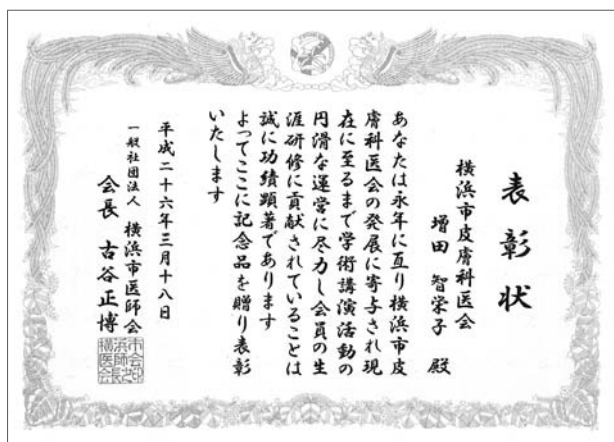 表彰状
横浜市皮膚科医会
増田 智栄子 殿
あなたは永年に亙り横浜市皮
膚科医会の発展に寄与され現
在に至るまで学術講演活動の
円滑な運営に尽力し会員の生
涯研修に貢献されていることは
誠に功績顕著であります
よってここに記念品を贈り表彰
いたします
平成二十六年三月十八日
一般社団法人 横浜市医師会
会長 古谷正博